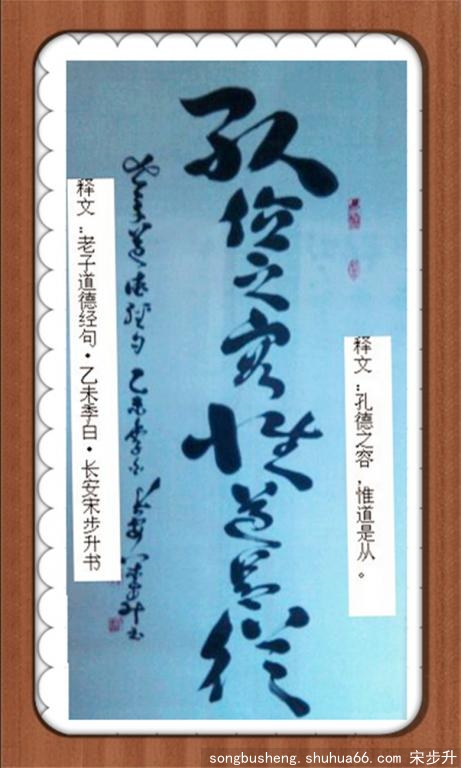 释文：孔德之容，惟道是从。
孔德之容惟道是從
老子道德经句乙未季白长安宋步升书
释文：老子道德经句·乙未季白·长安宋步升书
songbusheng.shuhua66.com 宋步升